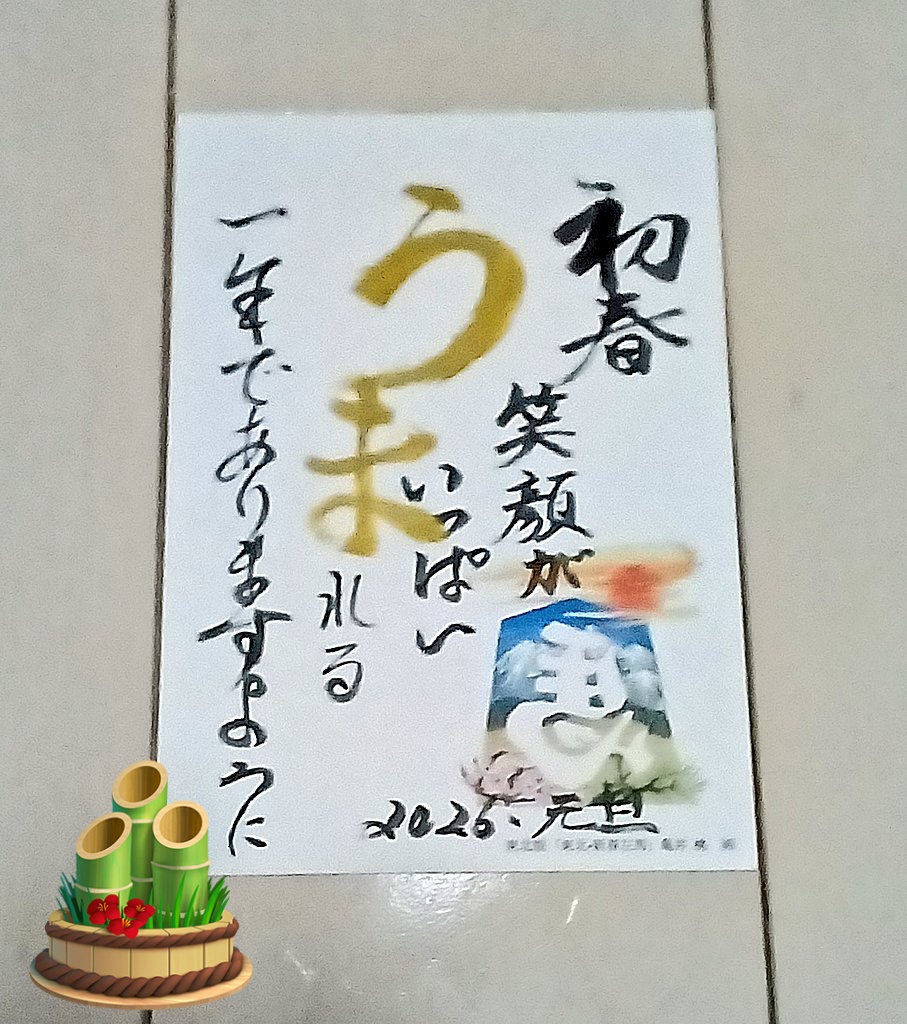 初春
笑顔が
いっぱい
うまれる
一年でありますように
2026.元旦